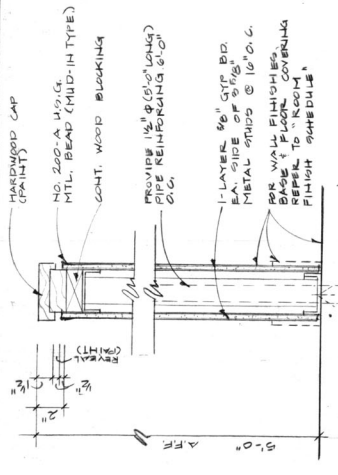 HARDWOOD CAP
(PAINT)
NO. 200-A U.S.G.
MTL. BEAD (MUD-IN TYPE)
CONT. WOOD BLOCKING
PROVIDE 1½" Φ (5'-0" LONG)
PIPE REINFORCING 6'-0"
O.C.
1-LAYER 5/8" GYP BD.
EA. SIDE OF 3 5/8"
METAL STUDS @ 16" O.C.
FOR WALL FINISHES,
BASE & FLOOR COVERING
REFER TO "ROOM
FINISH SCHEDULE"
REVEAL
(PAINT)
1½"
½"
2"
5'-0"
A.F.F.